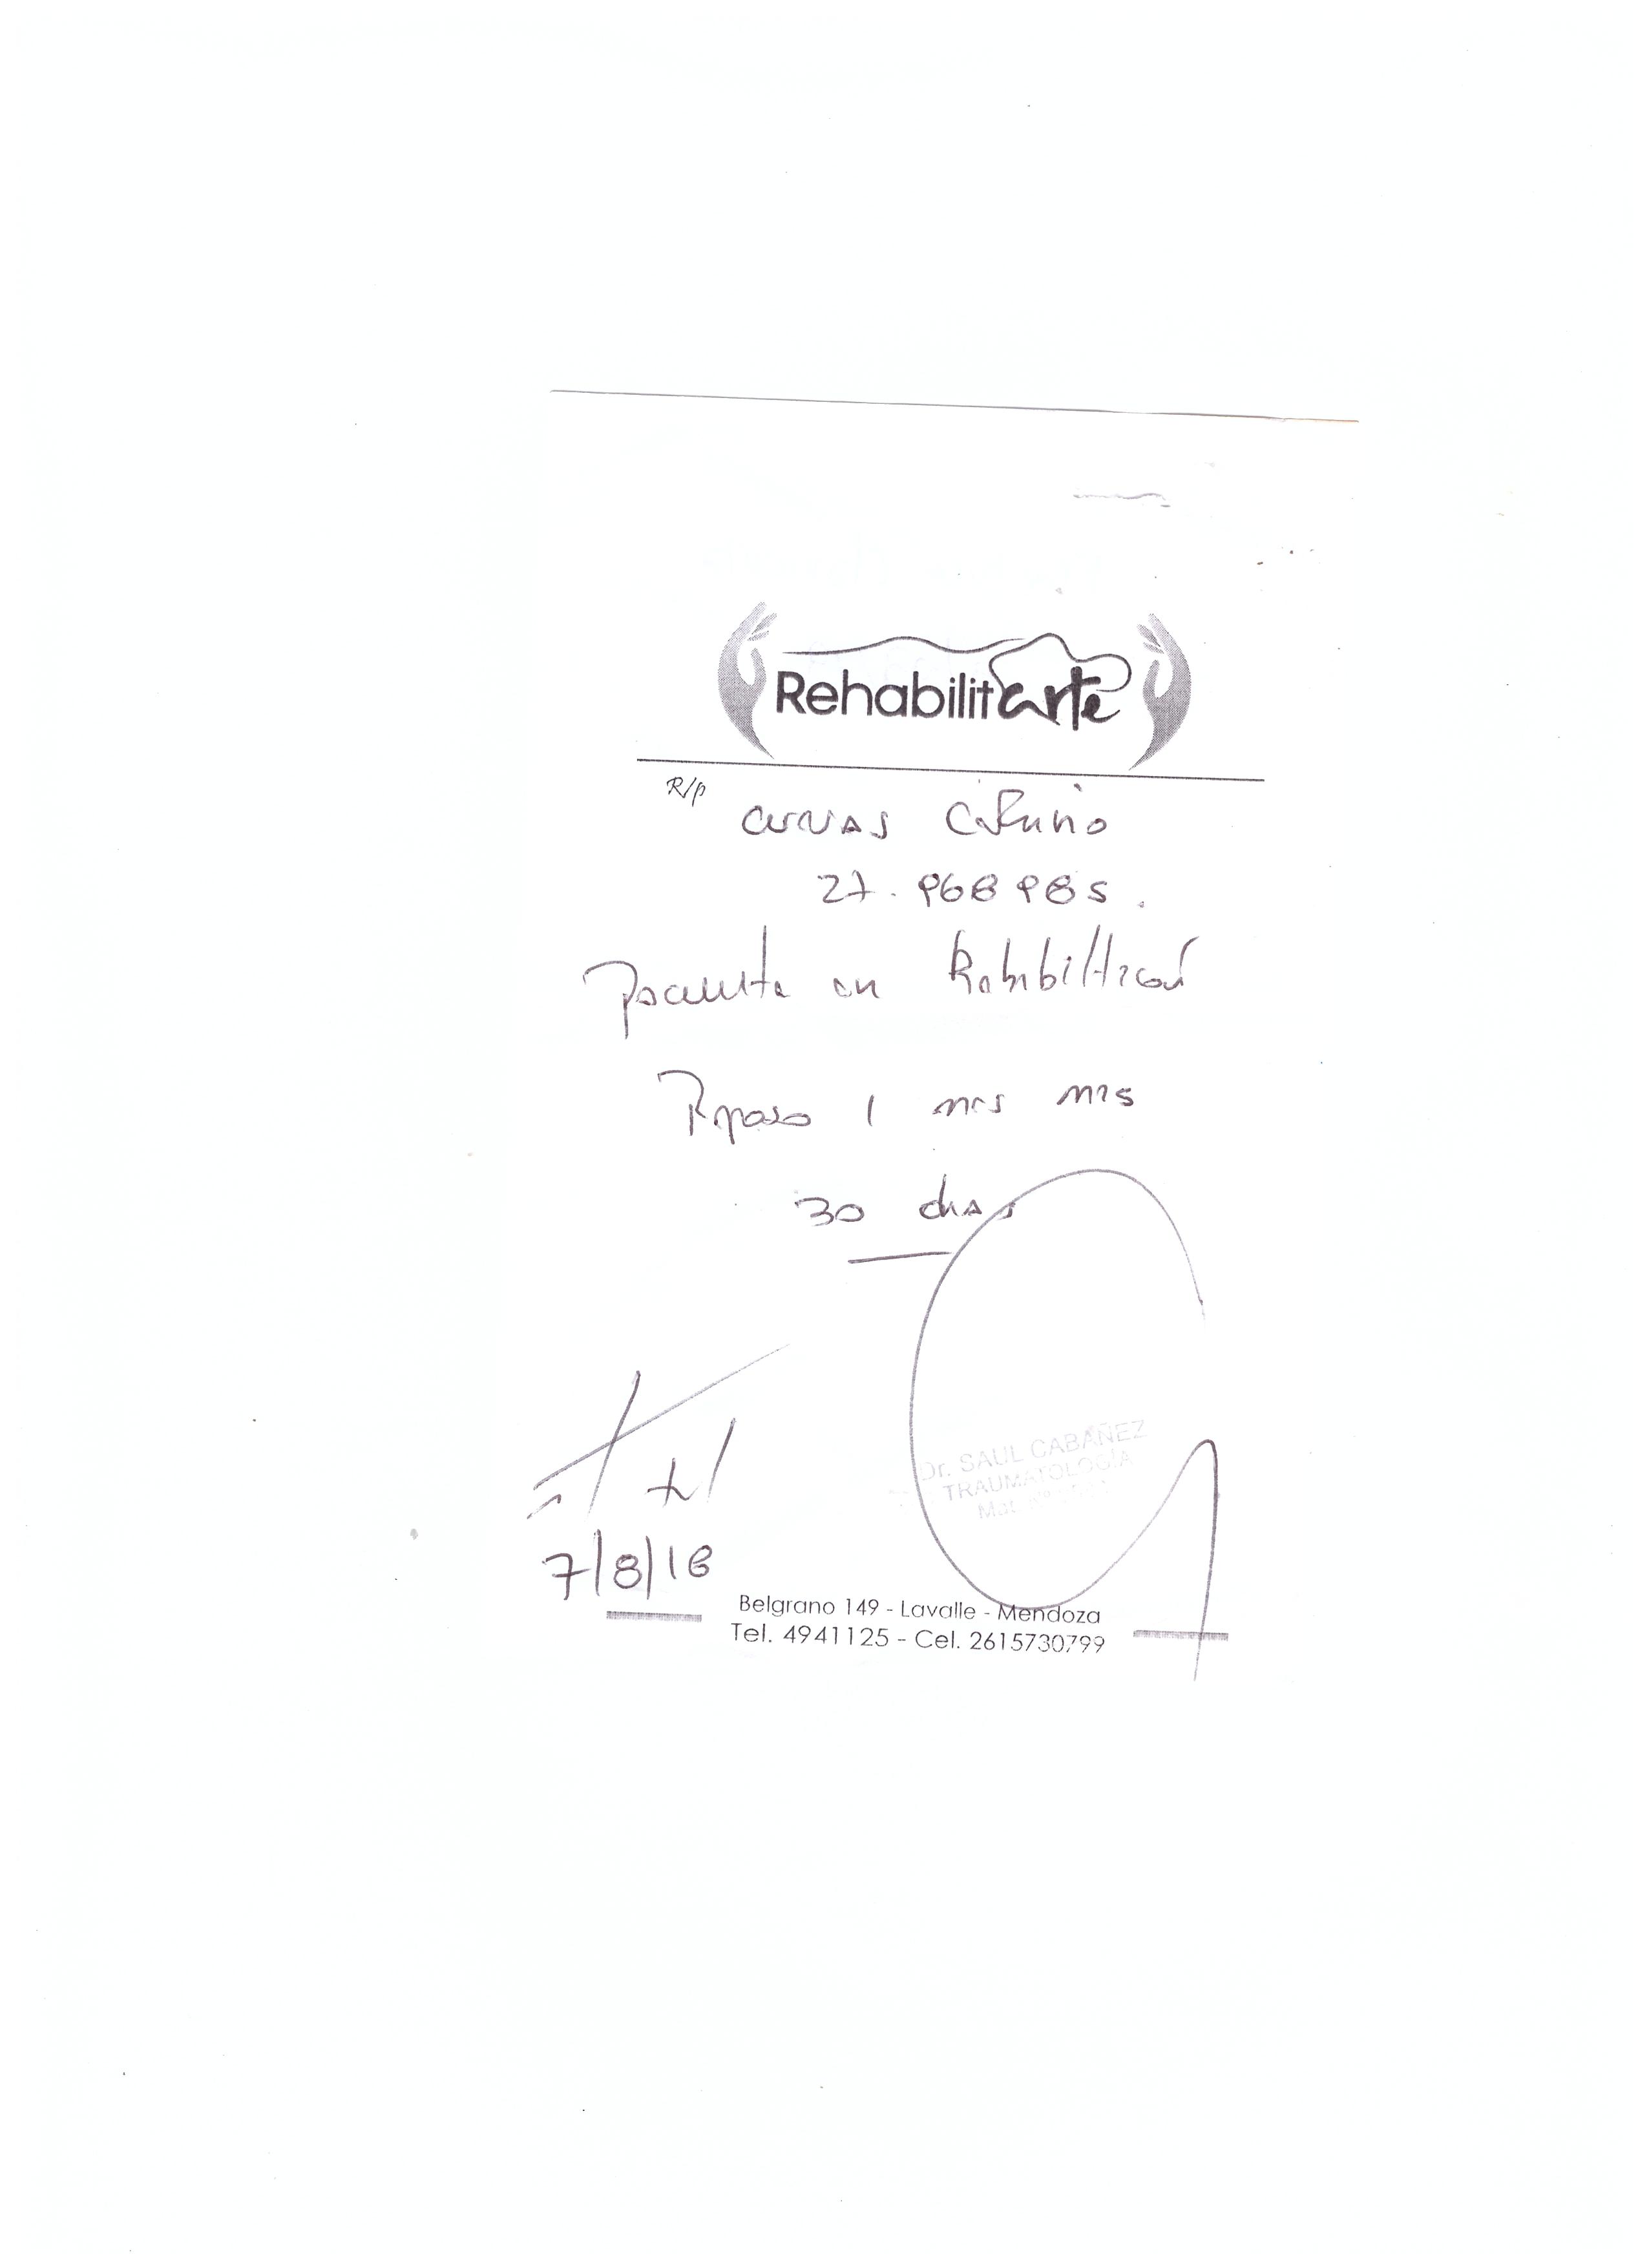 RehabilitArte
R/p
27.968985.
Paciente en Rehabilitación
Reposo 1 mes mas
30 dias
Dr. SAUL CABAÑEZ
TRAUMATOLOGÍA
Mat
7/8/18
Belgrano 149 - Lavalle - Mendoza
Tel. 4941125 - Cel. 2615730799